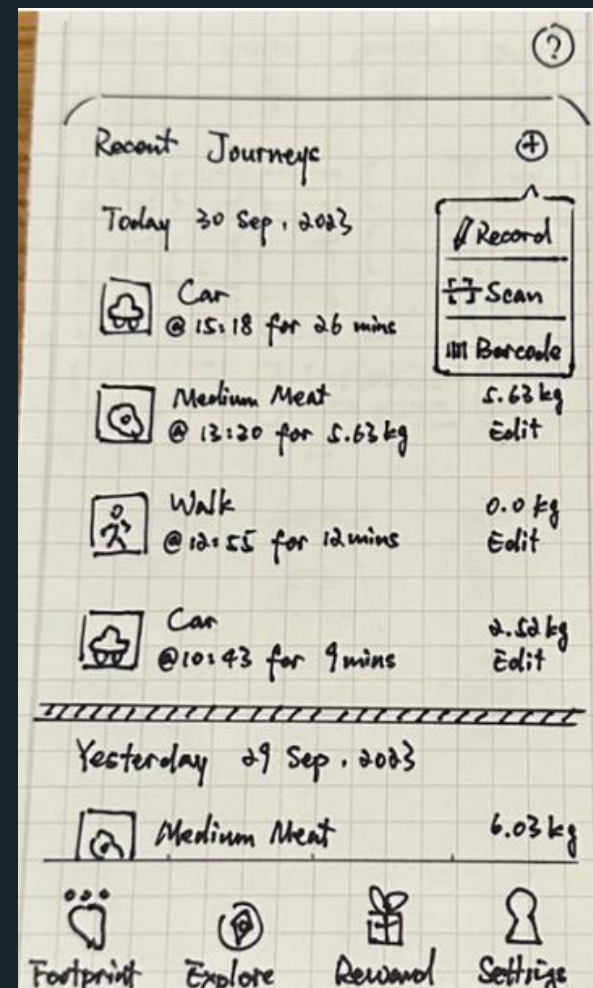 ?
Recent Journeys
Today 30 Sep, 2023
Record
Scan
Barcode
Car
@ 15:18 for 26 mins
Medium Meat 5.63 kg
@ 13:20 for 5.63 kg Edit
Walk 0.0 kg
@ 12:55 for 12 mins Edit
Car 2.52 kg
@ 10:43 for 9 mins Edit
Yesterday 29 Sep, 2023
Medium Meat 6.03 kg
Footprint Explore Reward Settings